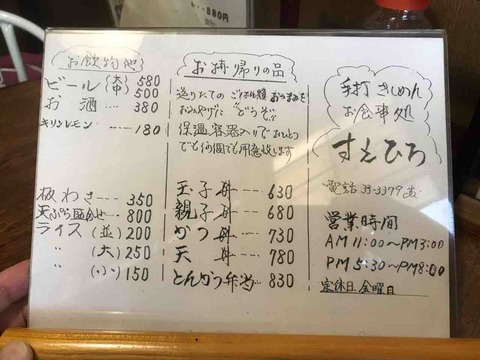 880円
お飲物他
ビール(大) 580
(中) 500
お酒 ---- 380
キリンレモン ---- 180
板わさ --- 350
天ぷら盛合せ --- 800
ライス (並) 200
〃 (大) 250
〃 (小) 150
お持帰りの品
送りたての ご
おみやげに どうぞ
保温容器入りでおひとつ
でも何個でも用意致します
玉子丼 --- 630
親子丼 --- 680
かつ丼 --- 730
天丼 --- 780
とんかつ弁当 --- 830
手打 きしめん
お食事処
すえひろ
電話 33-3379
営業時間
AM 11:00〜PM 3:00
PM 5:30〜PM 8:00
定休日 金曜日